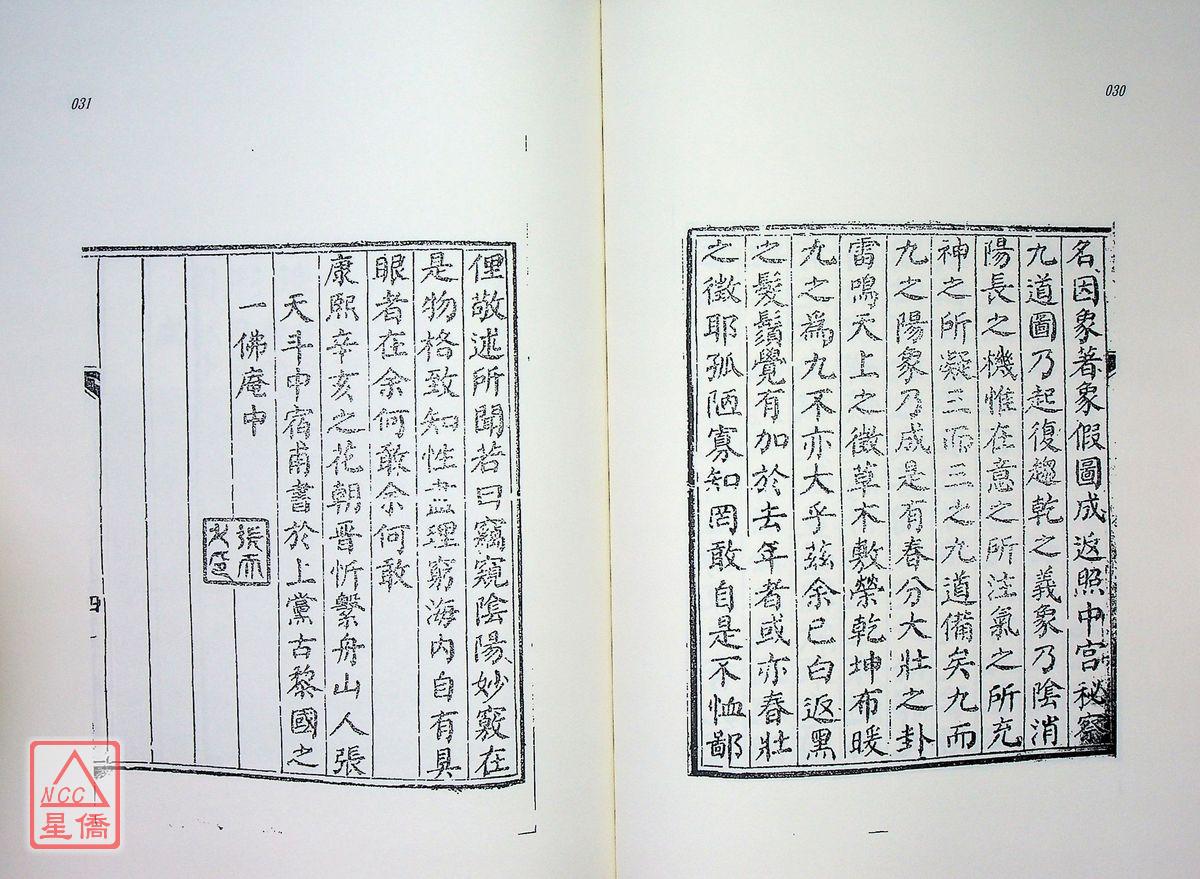 030
名因象著象假圖成返照中宮秘察
九道圖乃起復趨乾之義象乃陰消
陽長之機惟在意之所注氣之所充
神之所凝三而三之九道備矣九而
九之陽象乃成是有春分大壯之卦
雷鳴天上之徵草木敷榮乾坤布暖
九之為九不亦大乎茲余已白返黑
之髮鬚覺有加於去年者或亦春壯
之徵耶孤陋寡知罔敢自是不恤鄙
031
俚敬述所聞若曰竊窺陰陽妙竅在
是物格致知性盡理窮海內自有具
眼者在余何敢余何敢
康熙辛亥之花朝晋忻繫舟山人張
天斗中宿甫書於上黨古黎國之
一佛庵中
張
四
NCC
星僑